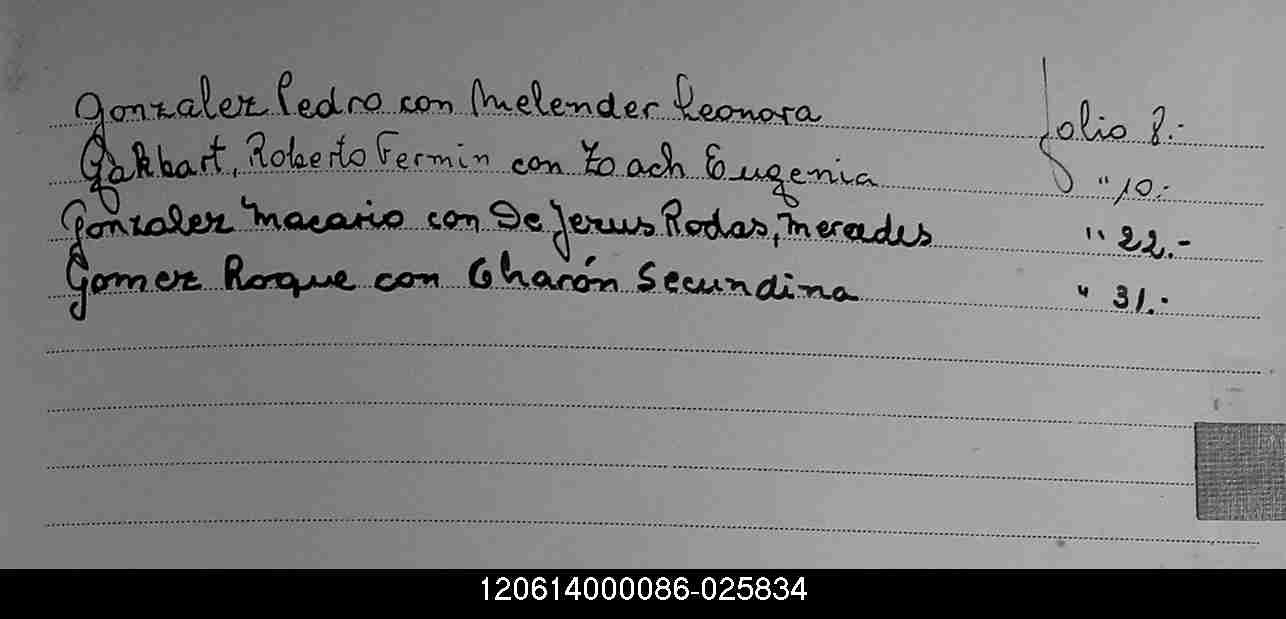 Gonzalez Pedro con Melendez Leonora folio 8.-
Gakbart, Roberto Fermin con Zoach Eugenia " 10.-
Gonzalez Macario con De Jesus Rodas, Mercedes " 22.-
Gomez Roque con Charón Secundina " 31.-
120614000086-025834